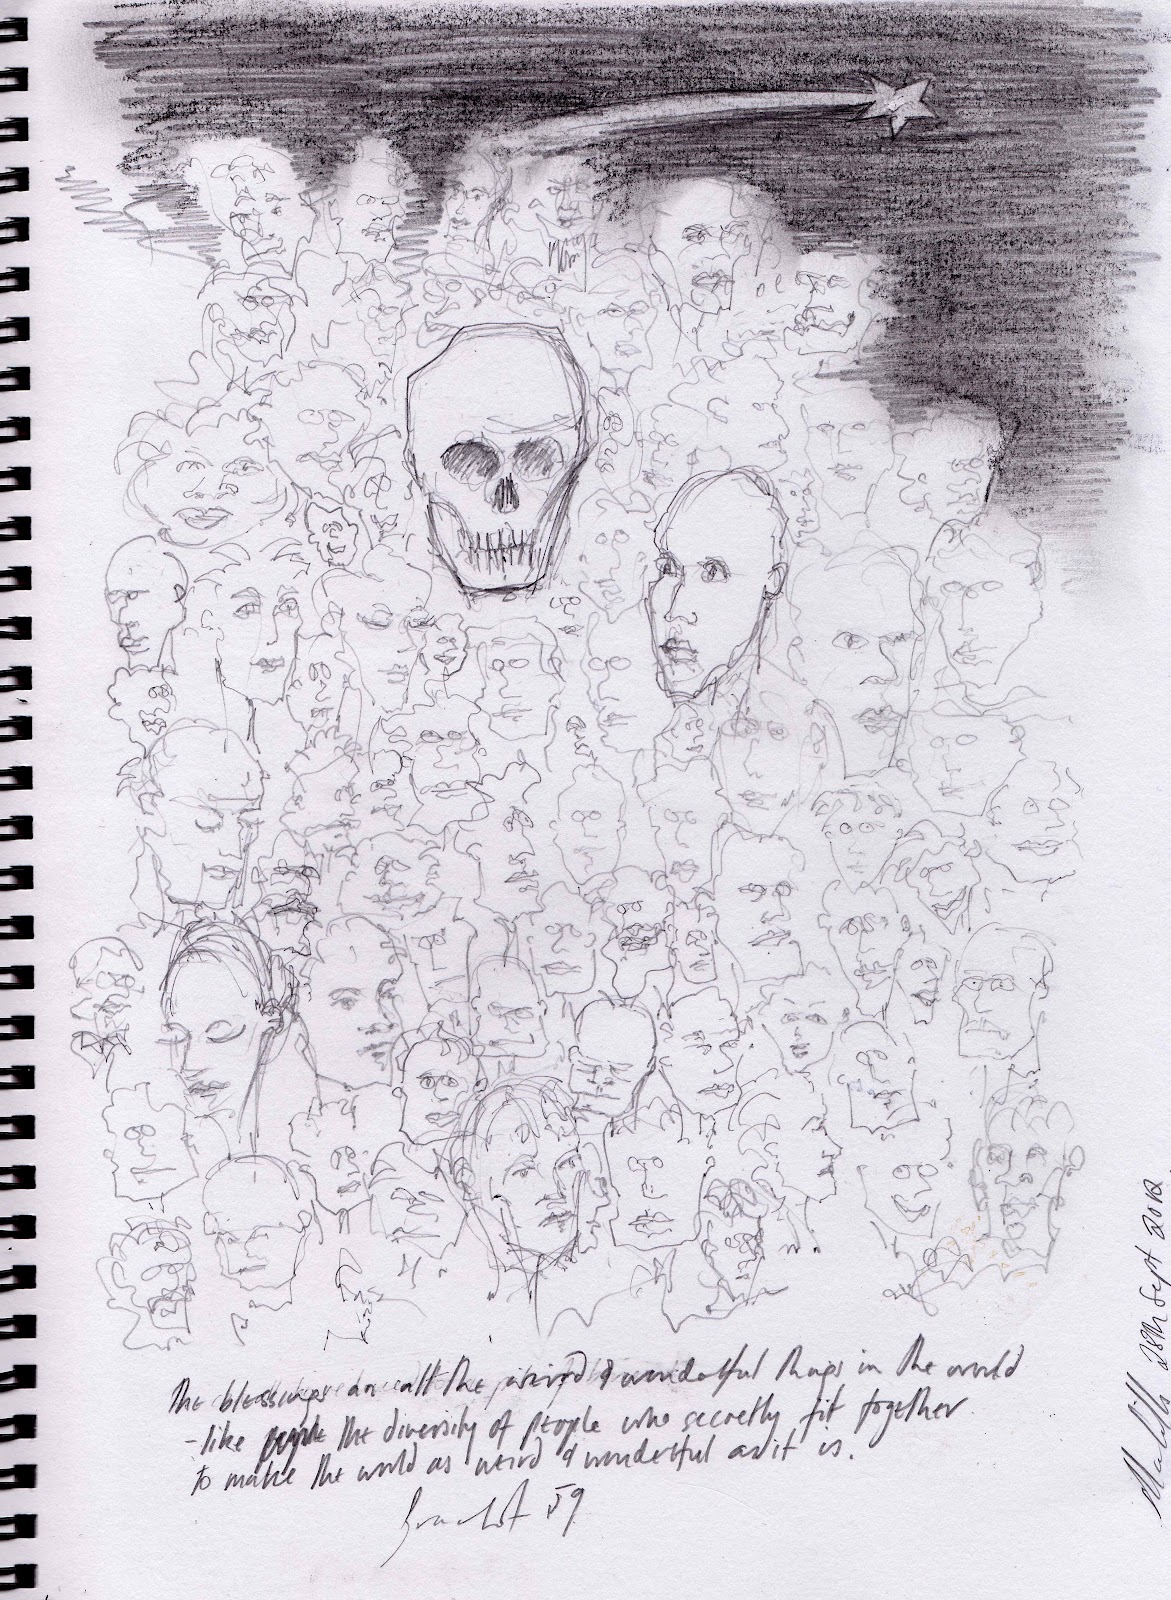 The blessings are all the weird & wonderful things in the world
- like the diversity of people who secretly fit together
to make the world as weird & wonderful as it is.
59
28th Sept 2012